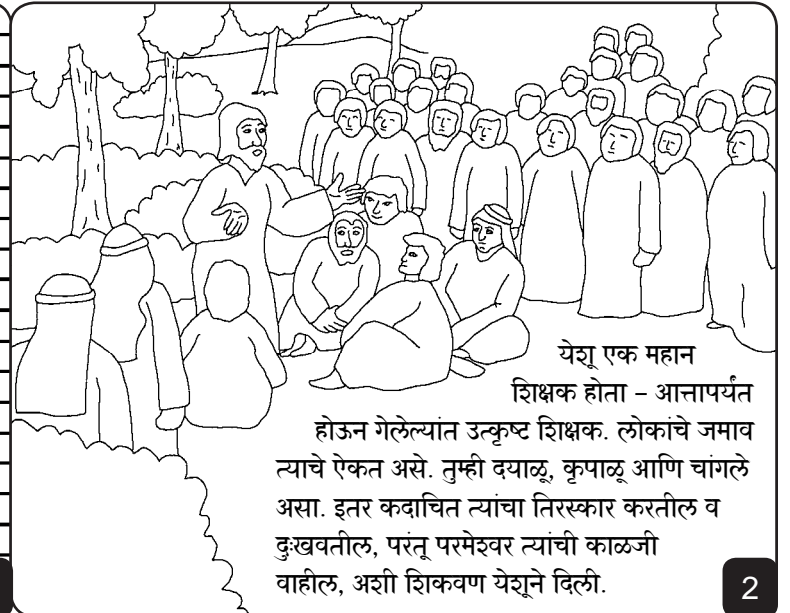 येशू एक महान
शिक्षक होता – आत्तापर्यंत
होऊन गेलेल्यांत उत्कृष्ट शिक्षक. लोकांचे जमाव
त्याचे ऐकत असे. तुम्ही दयाळू, कृपाळू आणि चांगले
असा. इतर कदाचित त्यांचा तिरस्कार करतील व
दुःखवतील, परंतू परमेश्वर त्यांची काळजी
वाहील, अशी शिकवण येशूने दिली.
2